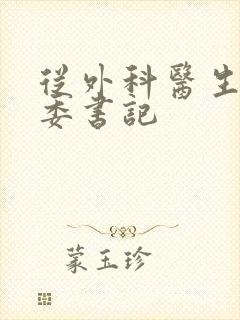 從外科醫生
委書記
蒙玉珍